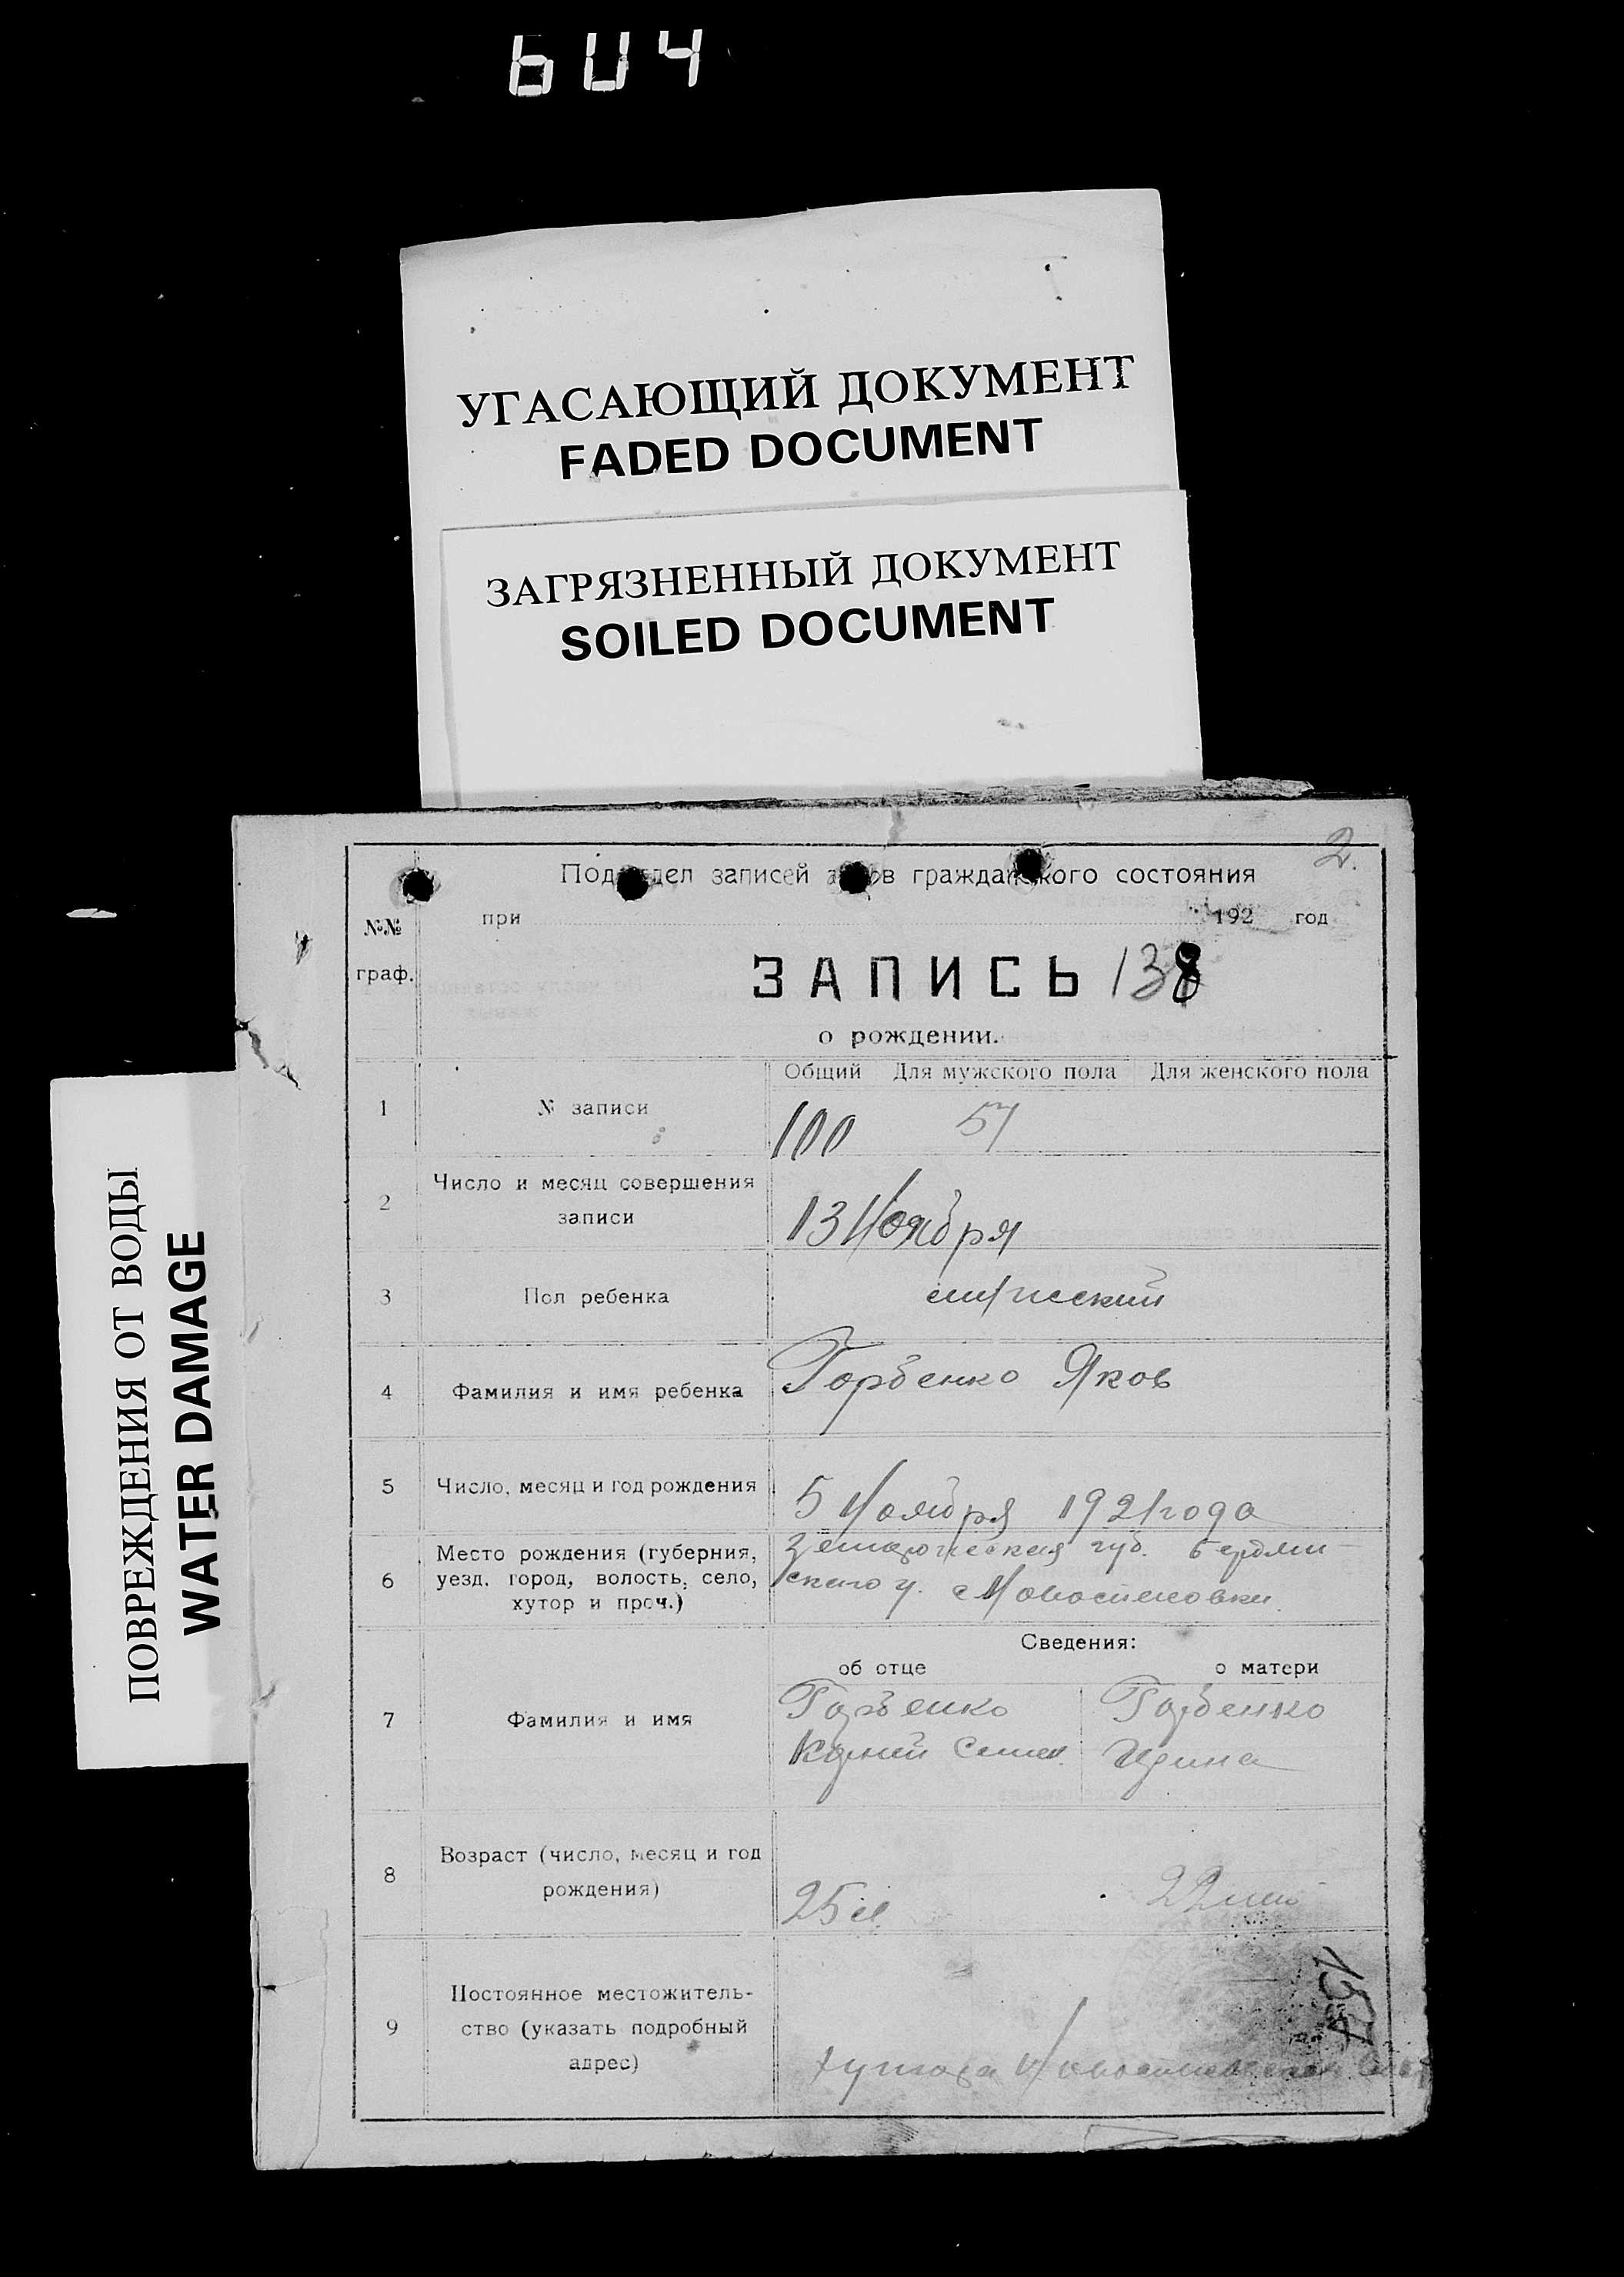 604
УГАСАЮЩИЙ ДОКУМЕНТ
FADED DOCUMENT
ЗАГРЯЗНЕННЫЙ ДОКУМЕНТ
SOILED DOCUMENT
ПОВРЕЖДЕНИЯ ОТ ВОДЫ
WATER DAMAGE
2.
Подотдел записей актов гражданского состояния
№№ граф.
при 192 год
ЗАПИСЬ 138
о рождении.
Общий Для мужского пола Для женского пола
1 № записи 100 57
2 Число и месяц совершения
записи 13 Ноября
3 Пол ребенка мужский
4 Фамилия и имя ребенка Горбенко Яков
5 Число, месяц и год рождения 5 Ноября 1921 года
6 Место рождения (губерния,
уезд, город, волость, село,
хутор и проч.)
губ. Бердян-
ского у.
Сведения:
об отце о матери
7 Фамилия и имя
Горбенко Горбенко
Корней Семен. Ирина
8 Возраст (число, месяц и год
рождения)
25 л. 22
9 Постоянное местожитель-
ство (указать подробный
адрес)
хутора